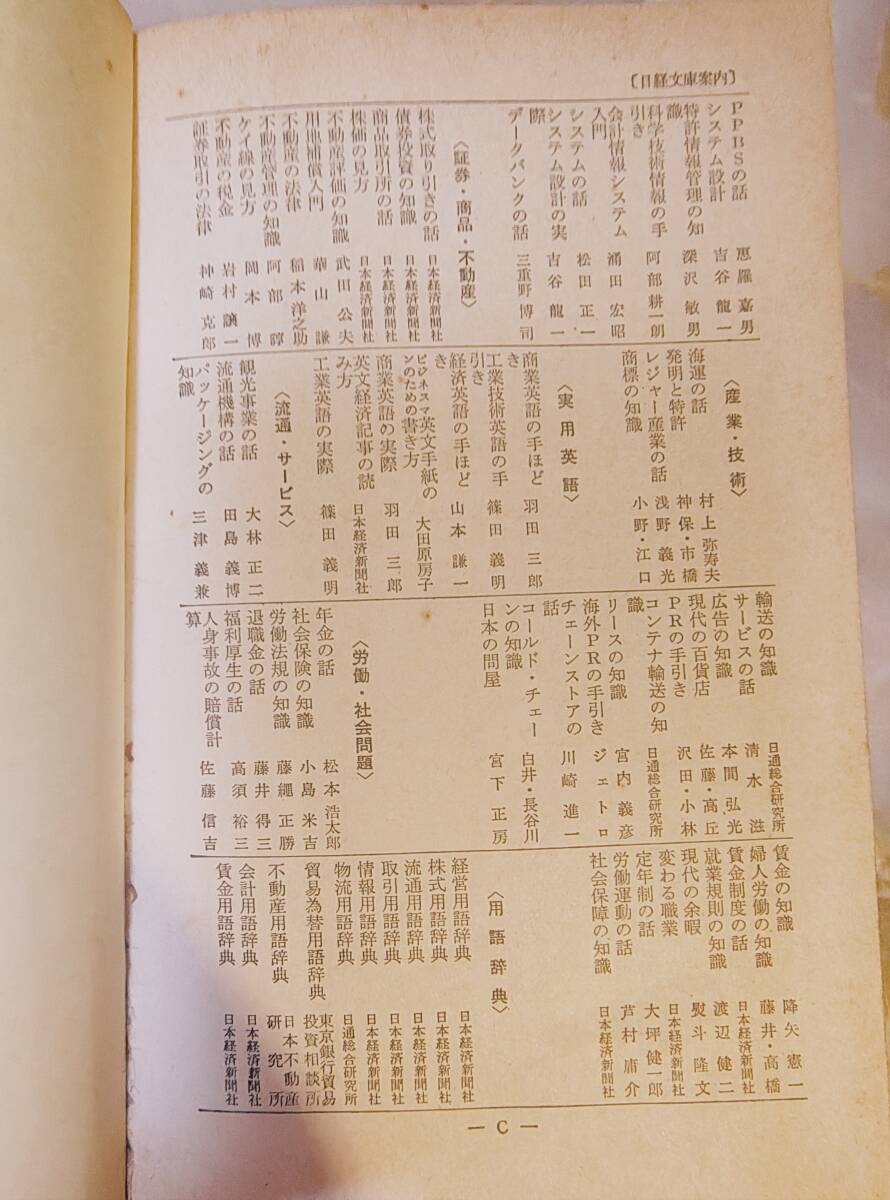 〔日経文庫案内〕
ＰＰＢＳの話　恵羅嘉男
システム設計　吉谷龍一
特許情報管理の知識　深沢敏男
科学技術情報の手引き　阿部耕一朗
会計情報システム入門　涌田宏昭
システムの話　松田正一
システム設計の実際　吉谷龍一
データバンクの話　三重野博司
〈証券・商品・不動産〉
株式取り引きの話　日本経済新聞社
債券投資の知識　日本経済新聞社
商品取引所の話　日本経済新聞社
株価の見方　日本経済新聞社
不動産評価の知識　武田公夫
用地補償入門　華山謙
不動産の法律　稲本洋之助
不動産管理の知識　阿部諄
ケイ線の見方　岡本博
不動産の税金　岩村讓一
証券取引の法律　神崎克郎
〈産業・技術〉
海運の話　村上弥寿夫
発明と特許　神保・市橋
レジャー産業の話　浅野義光
商標の知識　小野・江口
〈実用英語〉
商業英語の手ほどき　羽田三郎
工業技術英語の手引き　篠田義明
経済英語の手ほどき　山本謙一
ビジネスマンのための英文手紙の書き方　大田原房子
商業英語の実際　羽田三郎
英文経済記事の読み方　日本経済新聞社
工業英語の実際　篠田義明
〈流通・サービス〉
観光事業の話　大林正二
流通機構の話　田島義博
パッケージングの知識　三津義兼
輸送の知識　日通総合研究所
サービスの話　清水滋
広告の知識　本間弘光
現代の百貨店　佐藤・高丘
ＰＲの手引き　沢田・小林
コンテナ輸送の知識　日通総合研究所
リースの知識　宮内義彦
海外ＰＲの手引き　ジェトロ
チェーンストアの話　川崎進一
コールド・チェーンの知識　白井・長谷川
日本の問屋　宮下正房
〈労働・社会問題〉
年金の話　松本浩太郎
社会保険の知識　小島米吉
労働法規の知識　藤縄正勝
退職金の話　藤井得三
福利厚生の話　高須裕三
人身事故の賠償計算　佐藤信吉
賃金の知識　降矢憲一
婦人労働の知識　藤井・高橋
賃金制度の話　日本経済新聞社
就業規則の知識　渡辺健二
現代の余暇　日本経済新聞社
変わる職業　熨斗隆文
定年制の話　大坪健一郎
労働運動の話　芦村庸介
社会保障の知識　日本経済新聞社
〈用語辞典〉
経営用語辞典　日本経済新聞社
株式用語辞典　日本経済新聞社
流通用語辞典　日本経済新聞社
取引用語辞典　日本経済新聞社
情報用語辞典　日本経済新聞社
物流用語辞典　日通総合研究所
貿易為替用語辞典　東京銀行貿易投資相談所
不動産用語辞典　日本不動産研究所
会計用語辞典　日本経済新聞社
賃金用語辞典　日本経済新聞社
— C —